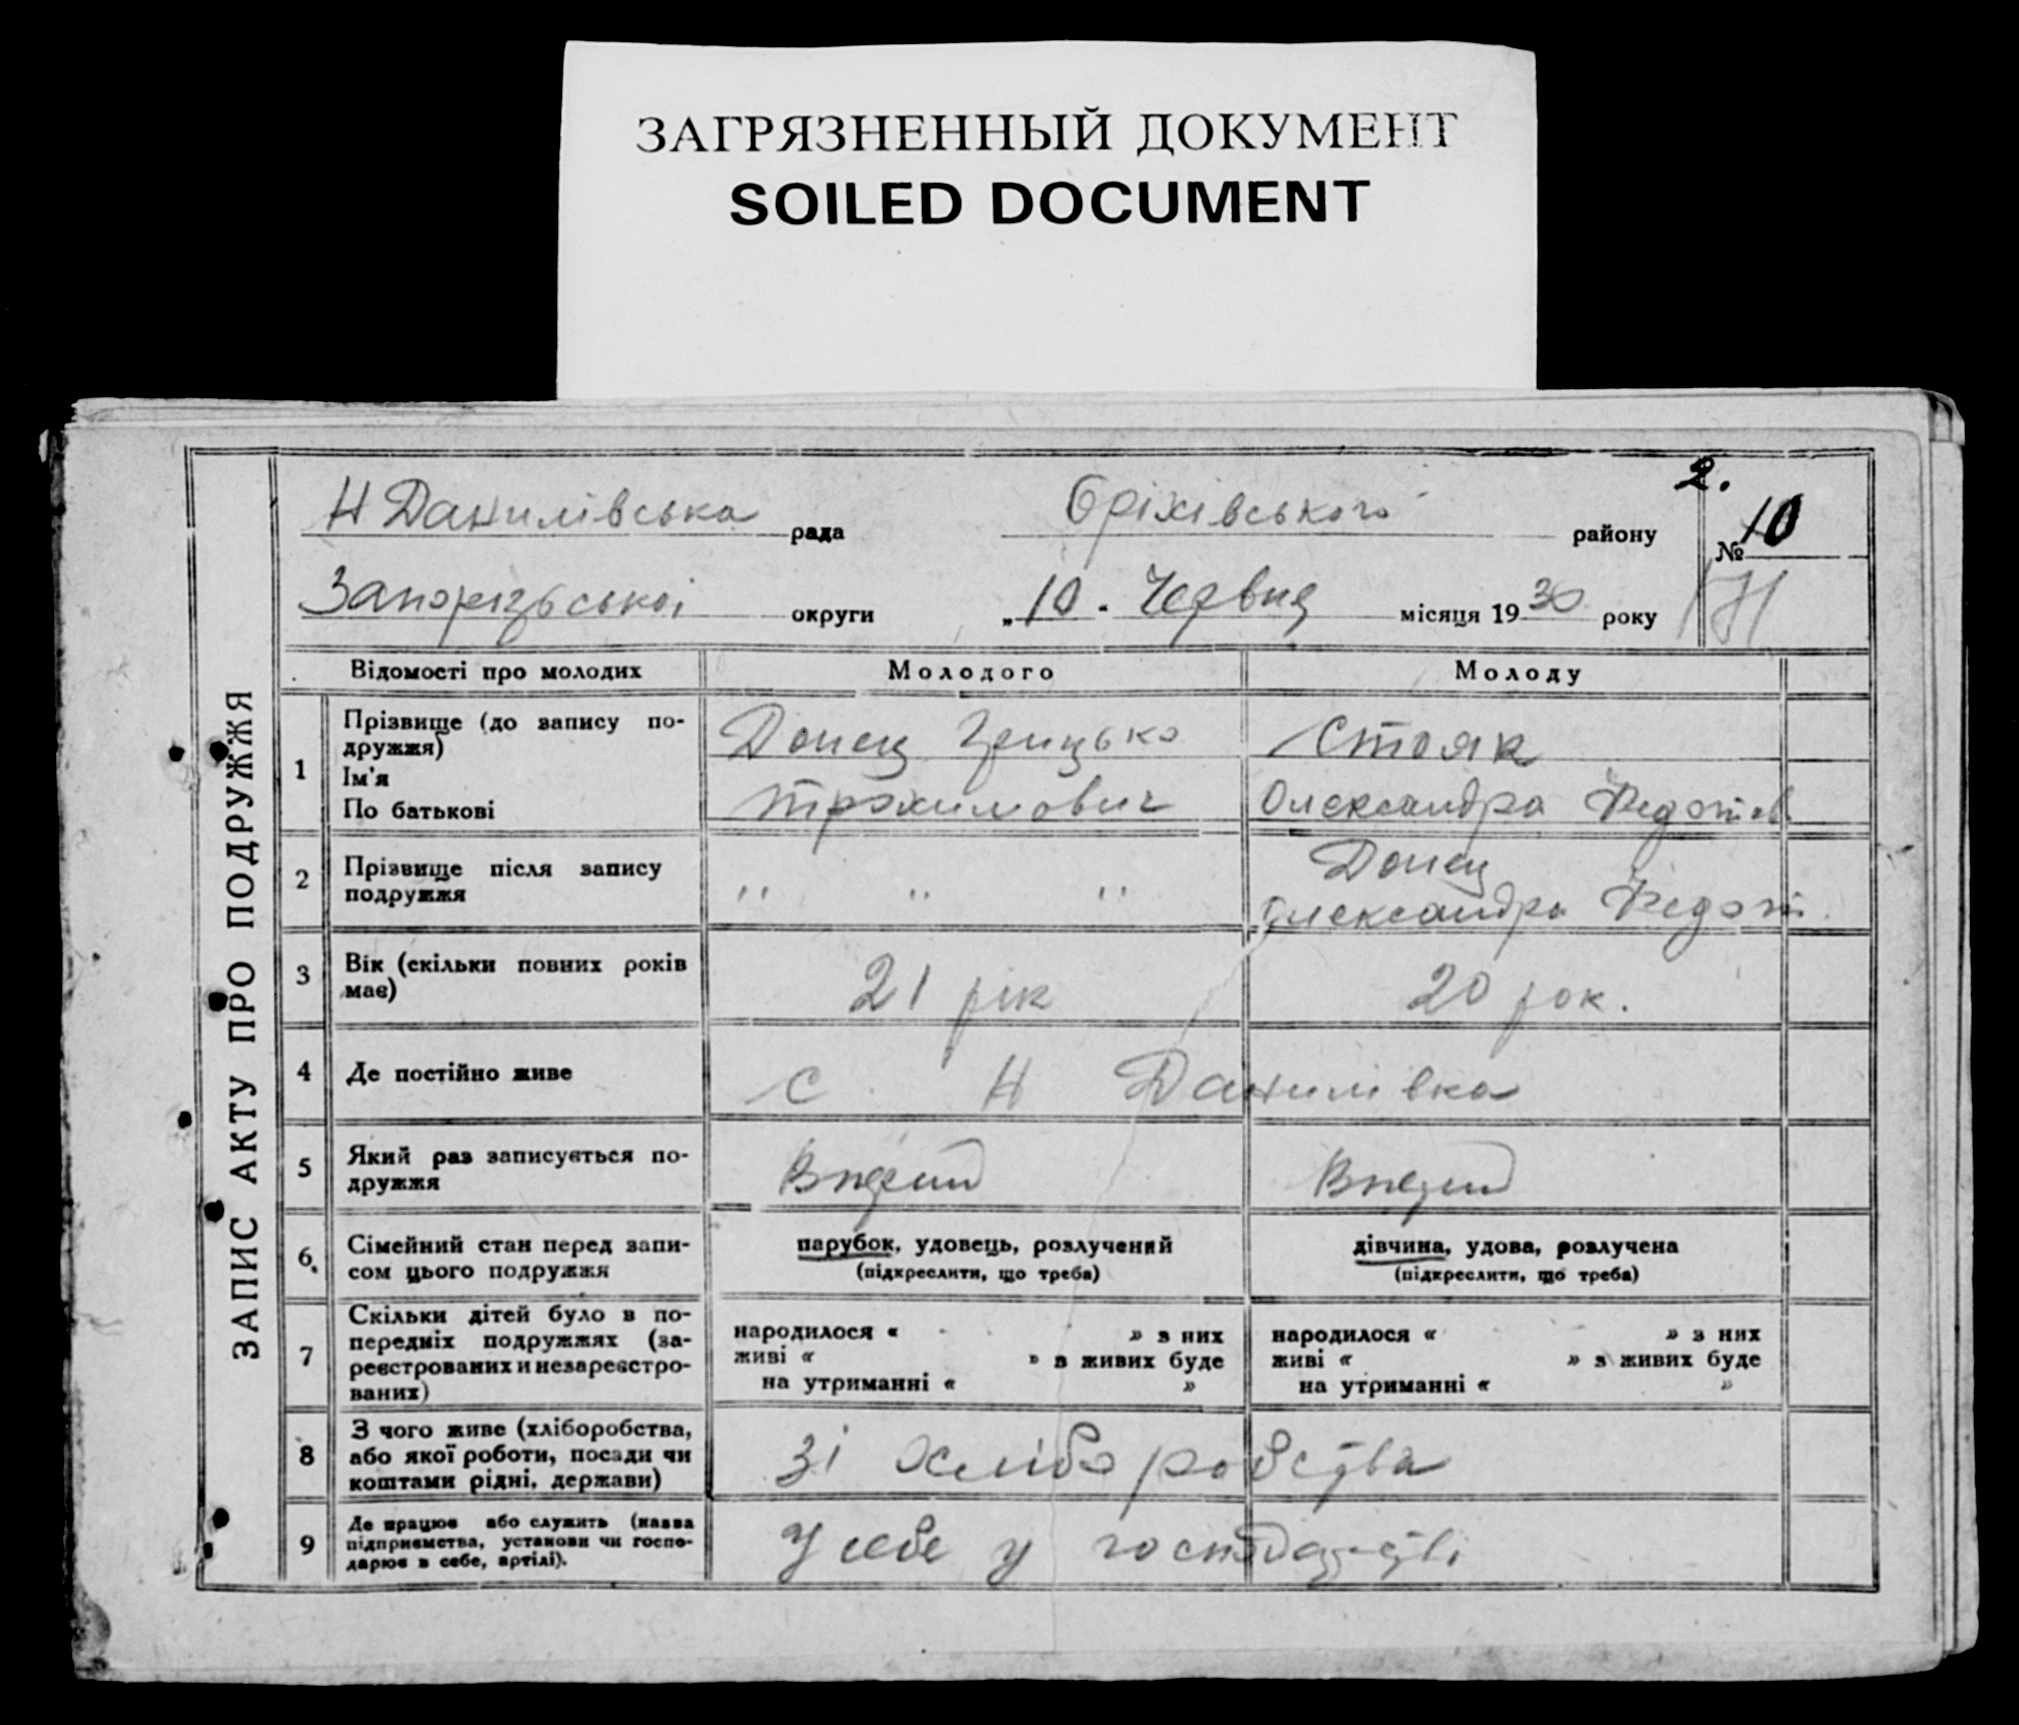 ЗАГРЯЗНЕННЫЙ ДОКУМЕНТ
SOILED DOCUMENT
2.
Н Данилівська рада Оріхівського району № 10
Запорізьської округи „10. Червня місяця 1930 року
ЗАПИС АКТУ ПРО ПОДРУЖЖЯ
Відомості про молодих Молодого Молоду
1 Прізвище (до запису по-
дружжя)
Ім'я
По батькові
Донец Грицько
Трохимович
Стояк
Олександра Федотов
2 Прізвище після запису
подружжя
" " "
Донец
Олександра Федот.
3 Вік (скільки повних років
має)
21 рік 20 рок.
4 Де постійно живе с Н Данилівка
5 Який раз записується по-
дружжя
Вперш Вперш
6 Сімейний стан перед запи-
сом цього подружжя
парубок, удовець, розлучений
(підкреслити, що треба)
дівчина, удова, розлучена
(підкреслити, що треба)
7 Скільки дітей було в по-
передніх подружжях (за-
реєстрованих и незареєстро-
ваних)
народилося « » з них
живі « » з живих буде
на утриманні « »
народилося « » з них
живі « » з живих буде
на утриманні « »
8 З чого живе (хліборобства,
або якої роботи, посади чи
коштами рідні, держави)
зі хліборобства
9 Де працює або служить (назва
підприємства, установи чи госпо-
дарює в себе, артілі).
У себе у господарстві